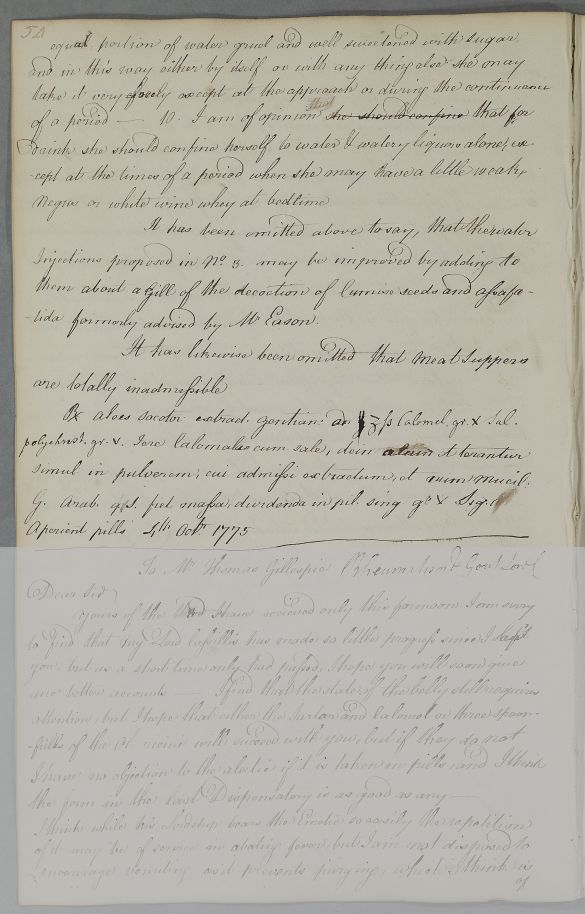 54
equal portion of water gruel and well sweetened with sugar
and in this way either by itself or with any thing else she may
take it very freely except at the approach or during the continuance
of a period — 10. I am of opinion that she should confine that for
Drink she should confine herself to water & watery liquors alone, ex-
-cept at the times of a period when she may have a little weak
Negus or white wine whey at bedtime
It has been omitted above to say, that the water
Injections proposed in No 8. may be improved by adding to
them about a Gill of the decoction of Cumin seeds and assafa-
-tida formerly advised by Mr Eason.
It has likewise been omitted that meat Suppers
are totally inadmissible
Rx aloes socotor. extract. gentian: an ʒſs Calomel. gr. X Sal.
polychrest. gr. X. Tere Calomelas cum sale, dein terantur
simul in pulverem, cui admissi extractum, et cum mucil:
G. Arab. q.s. fiet massa, dividenda in pil. sing gr X Sig.
Aperient pills 4th Octr 1775
To Mr Thomas Gillespie
Dear Sir
Yours of the I have recieved only this forenoon. I am sorry
to find that my Lord Cassillis has made so little progress since I
you, but as a short time only had passed, I hope you will soon give
me better accounts — I find that the state of the belly still requires
attention, but I hope that either the Tartar and Calomel or three spoon-
-fulls of the Ol ricini will succeed with you, but if they do not
I have no objection to the aloetic if it is taken in pills and I think
the form in the last Dispensatory is as good as any —
I think while his Lordship bears the Emetic so easily the repetition
of it may be of service in abating fever, but I am not disposed to
encourage vomiting as it prevents purging, which I think is
of